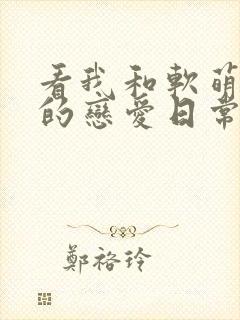 看我和軟萌
的戀愛日常
鄭裕玲